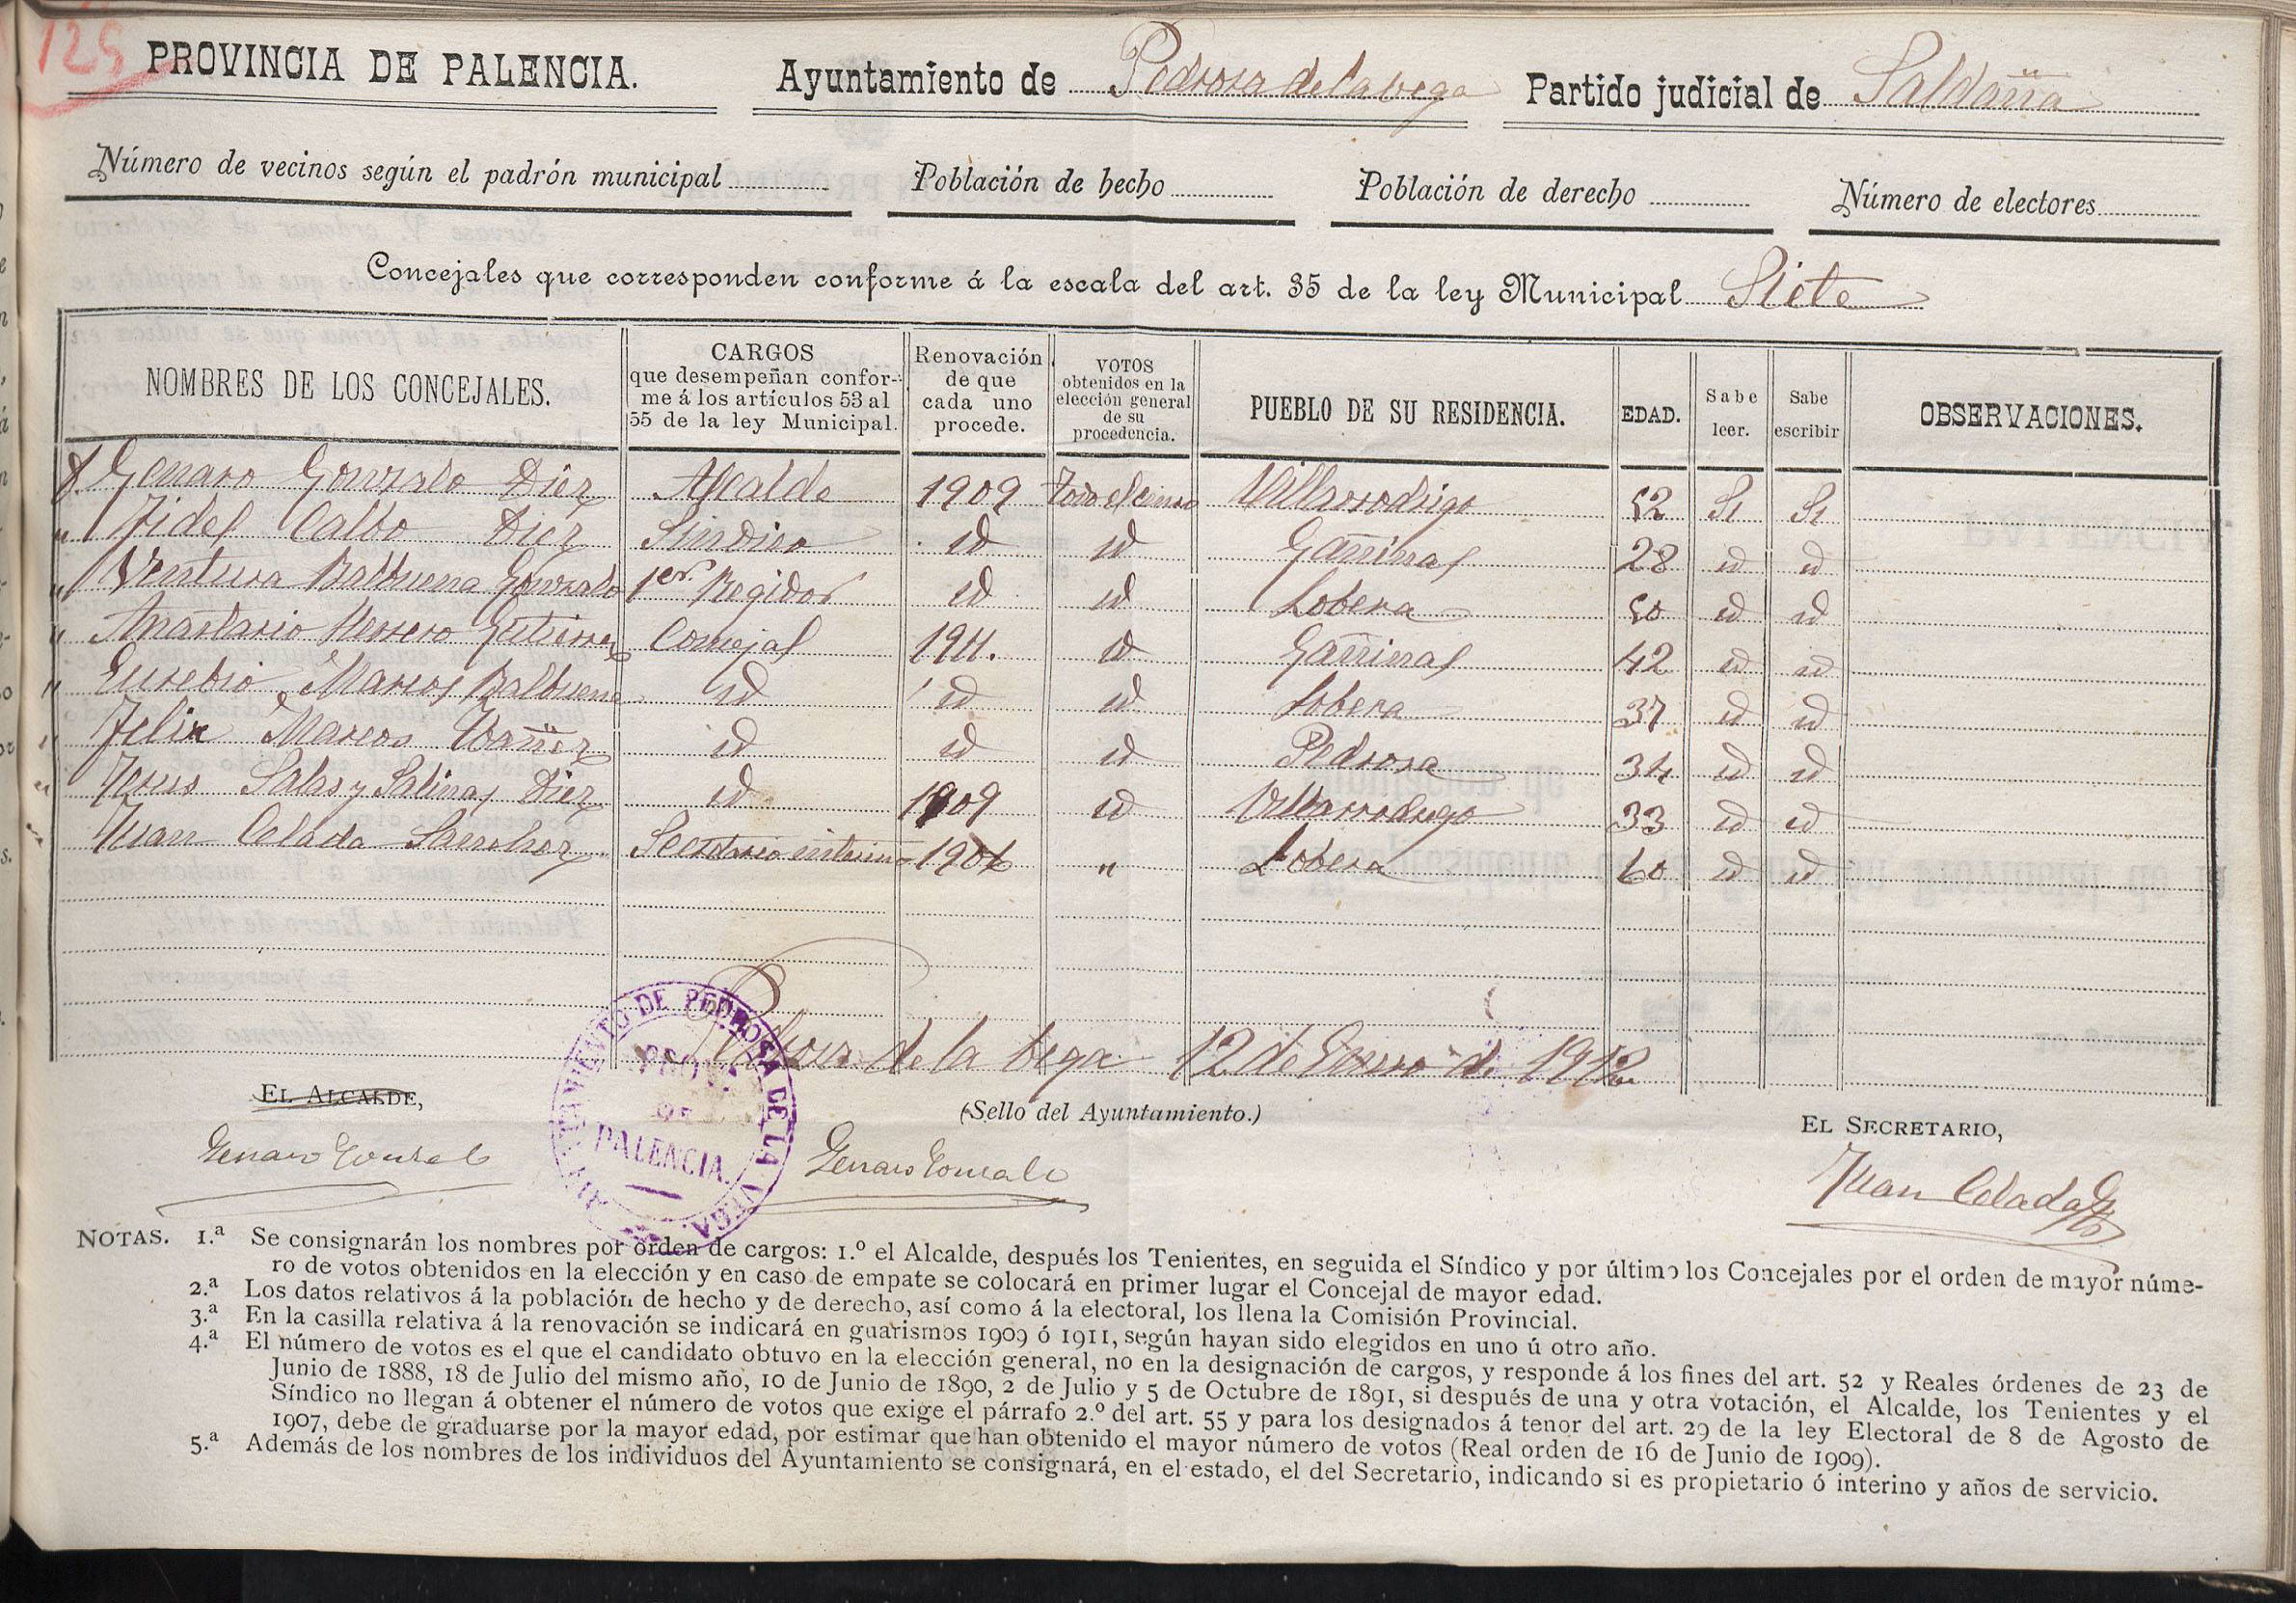 125
PROVINCIA DE PALENCIA. Ayuntamiento de Pedrosa de la vega Partido judicial de Saldaña
Número de vecinos según el padrón municipal Población de hecho Población de derecho Número de electores
Concejales que corresponden conforme á la escala del art. 35 de la ley Municipal Siete
NOMBRES DE LOS CONCEJALES. CARGOS que desempeñan confor- me á los artículos 53 al 55 de la ley Municipal. Renovación de que cada uno procede. VOTOS obtenidos en la elección general de su procedencia. PUEBLO DE SU RESIDENCIA. EDAD. Sabe leer. Sabe escribir OBSERVACIONES.
Genaro Gonzalo Diez Alcalde 1909 Villarrodrigo 52 Si Si
" Fidel Calbo Diez Sindico id id Gañinas 28 id id
" Ventura Balbuena Gonzalo 1er. Regidor id id Lobera 50 id id
" Anastasio Herrero Gutierrez Concejal 1911. id Gañinas 42 id id
" Eusebio Marcos Balbuena id id id Lobera 37 id id
" Felix Marcos Ibañez id id id Pedrosa 34 id id
" Jesus Salas y Salinas Diez id 1909 id Villarrodrigo 33 id id
Juan Celada Sanchez Secretario interino 1906 " Lobera 60 id id
Pedrosa de la bega 12 de Enero de 1912
EL ALCALDE, (Sello del Ayuntamiento.) EL SECRETARIO,
AYUNTAMIENTO DE PEDROSA DE LA VEGA.
PROV.
DE
PALENCIA
Genaro Gonzalo Genaro Gonzalo Juan Celada
NOTAS. 1.ª Se consignarán los nombres por orden de cargos: 1.º el Alcalde, después los Tenientes, en seguida el Síndico y por último los Concejales por el orden de mayor núme-
ro de votos obtenidos en la elección y en caso de empate se colocará en primer lugar el Concejal de mayor edad.
2.ª Los datos relativos á la población de hecho y de derecho, así como á la electoral, los llena la Comisión Provincial.
3.ª En la casilla relativa á la renovación se indicará en guarismos 1909 ó 1911, según hayan sido elegidos en uno ú otro año.
4.ª El número de votos es el que el candidato obtuvo en la elección general, no en la designación de cargos, y responde á los fines del art. 52 y Reales órdenes de 23 de
Junio de 1888, 18 de Julio del mismo año, 10 de Junio de 1890, 2 de Julio y 5 de Octubre de 1891, si después de una y otra votación, el Alcalde, los Tenientes y el
Síndico no llegan á obtener el número de votos que exige el párrafo 2.º del art. 55 y para los designados á tenor del art. 29 de la ley Electoral de 8 de Agosto de
1907, debe de graduarse por la mayor edad, por estimar que han obtenido el mayor número de votos (Real orden de 16 de Junio de 1909).
5.ª Además de los nombres de los individuos del Ayuntamiento se consignará, en el estado, el del Secretario, indicando si es propietario ó interino y años de servicio.